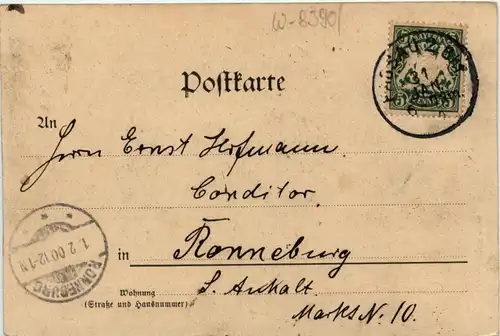 W-8390/
BAYERN
31
JAN.
5
5
Postkarte
An
Herrn Ernst Hofmann.
Conditor.
in Ronneburg
S. Anhalt
Wohnung
(Straße und Hausnummer)
Markt N. 10.
RONNEBURG
1.2.00.12-1N